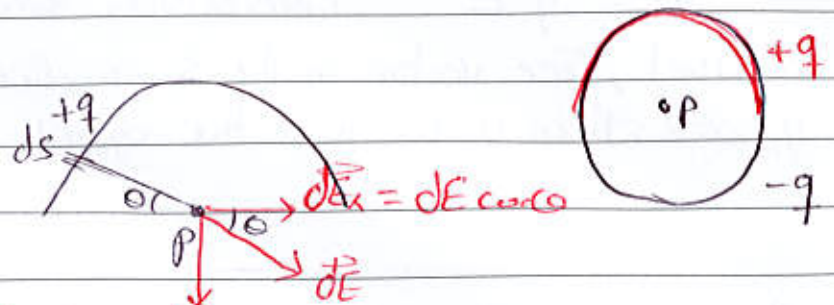 +q
ds
θ
P
θ
dEx = dE cosθ
dE
+q
P
-q